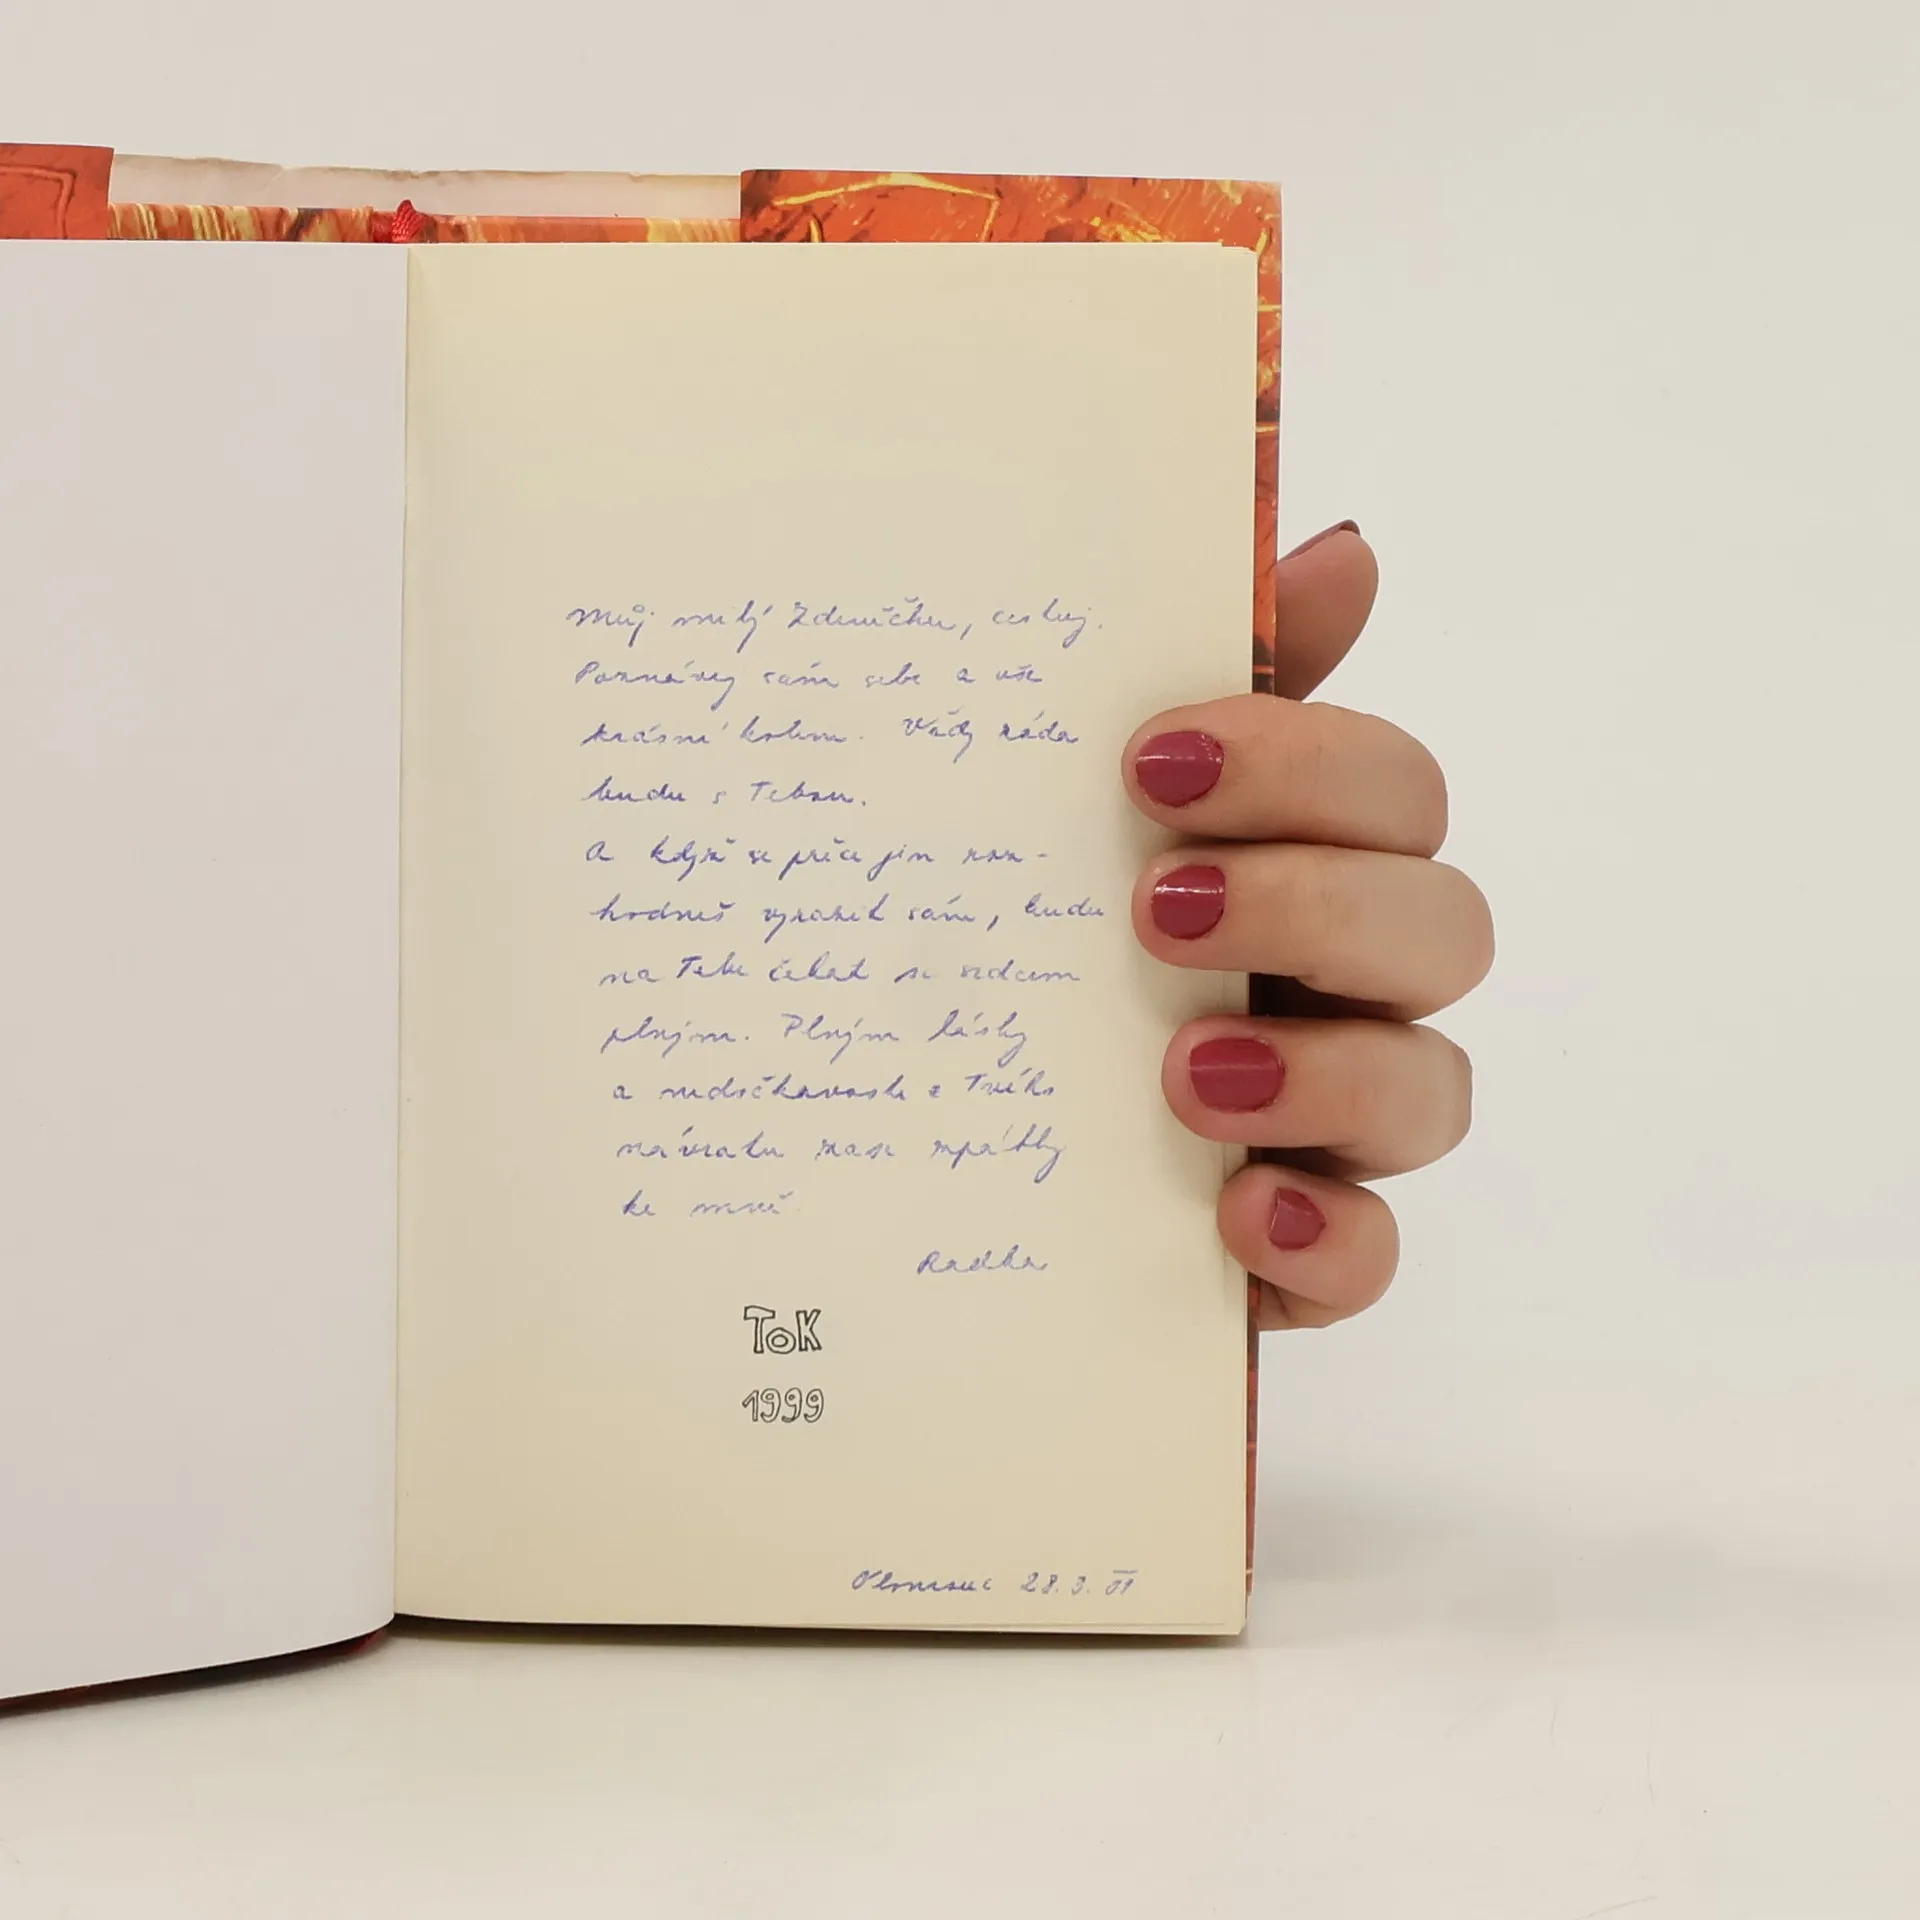 Můj milý Zdeničku, cestuj.
Poznávej sám sebe a vše
krásné kolem. Vždy ráda
budu s Tebou.
A když se přece jen roz-
hodneš vyrazit sám, budu
na Tebe čekat se srdcem
plným. Plným lásky
a nedočkavosti z Tvého
návratu zase zpátky
ke mně.
Radka
ToK
1999
Olomouc 28.3. 01